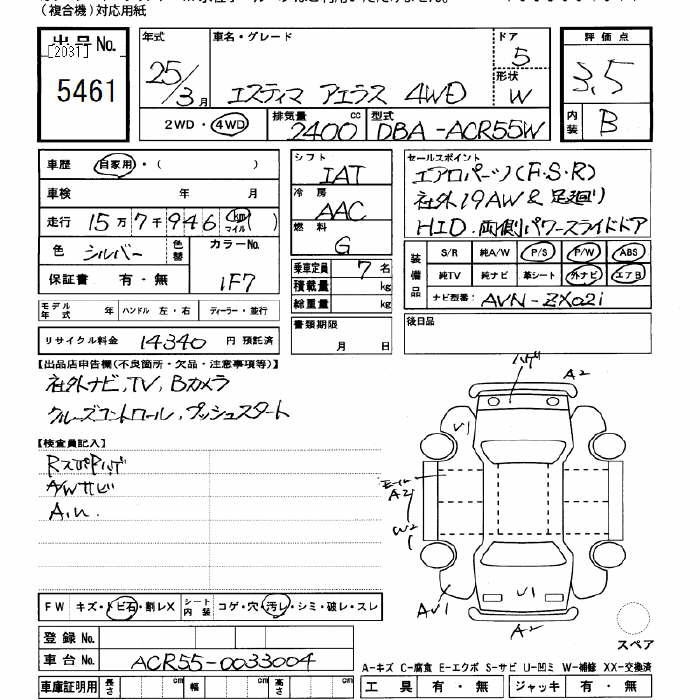 (複合機)対応用紙
出品No.
[2031]
5461
年式
25/3月
車名・グレード
エスティマ アエラス 4WD
ドア
5
形状
W
評価点
3.5
内装
B
2WD・4WD
排気量
2400cc
型式
DBA-ACR55W
車歴 自家用・( )
車検 年 月
走行 15万7千946(km マイル)
色 シルバー 色替 カラーNo.
1F7
保証書 有・無
モデル年式 年 ハンドル 左・右 ディーラー・並行
リサイクル料金 14340円 預託済
シフト
IAT
冷房
AAC
燃料
G
乗車定員 7名
積載量 kg
総重量 kg
書類期限
月 日
セールスポイント
エアロパーツ(F・S・R)
社外19AW & 足廻り
HID.両側パワースライドドア
装備品
S/R 純A/W P/S P/W ABS
純TV 純ナビ 革シート 外ナビ エアB
ナビ型番: AVN-ZX02i
後日品
【出品店申告欄(不良箇所・欠品・注意事項等)】
社外ナビ,TV,Bカメラ
クルーズコントロール,プッシュスタート
【検査員記入】
A/Wサビ
ハゲ
A2
U1
A2
W2
AU1
U1
A2
スペア
FW キズ・トビ石・割レX シート内装 コゲ・穴・汚レ・シミ・破レ・スレ
登録No.
車台No. ACR55-0033004
車庫証明用 長さ cm 幅 cm 高さ cm
A-キズ C-腐食 E-エクボ S-サビ U-凹ミ W-補修 XX-交換済
工具 有・無 ジャッキ 有・無